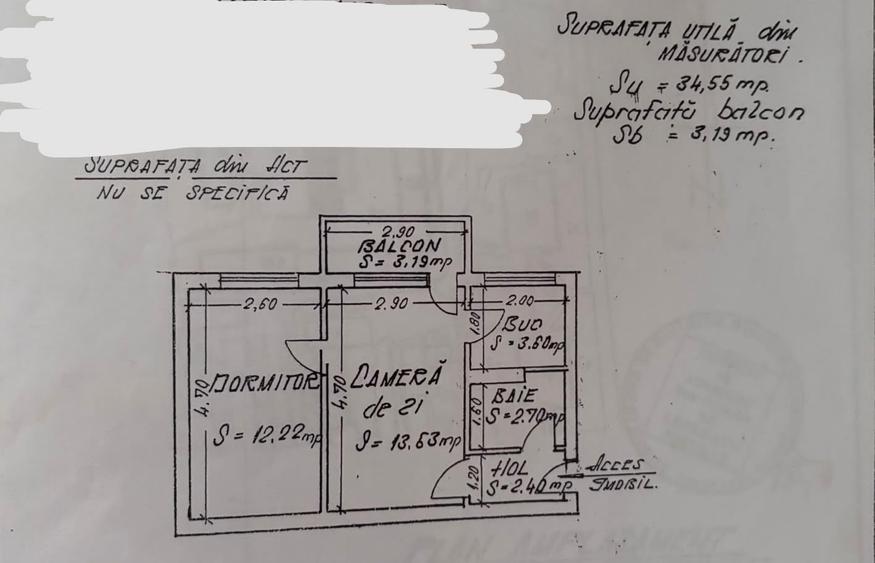 SUPRAFAȚA UTILĂ din
MĂSURĂTORI.
Su = 34,55 mp.
Suprafață balcon
Sb = 3,19 mp.
SUPRAFAȚA din ACT
NU SE SPECIFICĂ
2.90
BALCON
S = 3,19 mp
2,60
2.90
2.00
1.80
BUC
S = 3.60 mp
4,70
DORMITOR
S = 12,22 mp
4,70
CAMERĂ
de zi
S = 13,63 mp
1.60
BAIE
S = 2.70 mp
1.20
HOL
S = 2.40 mp
ACCES
IMOBIL.
PLAN AMPLASAMENT